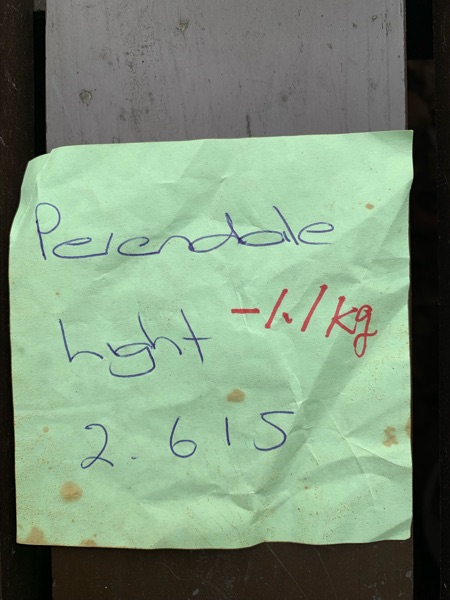 Perendale
light -1.1 kg
2.615